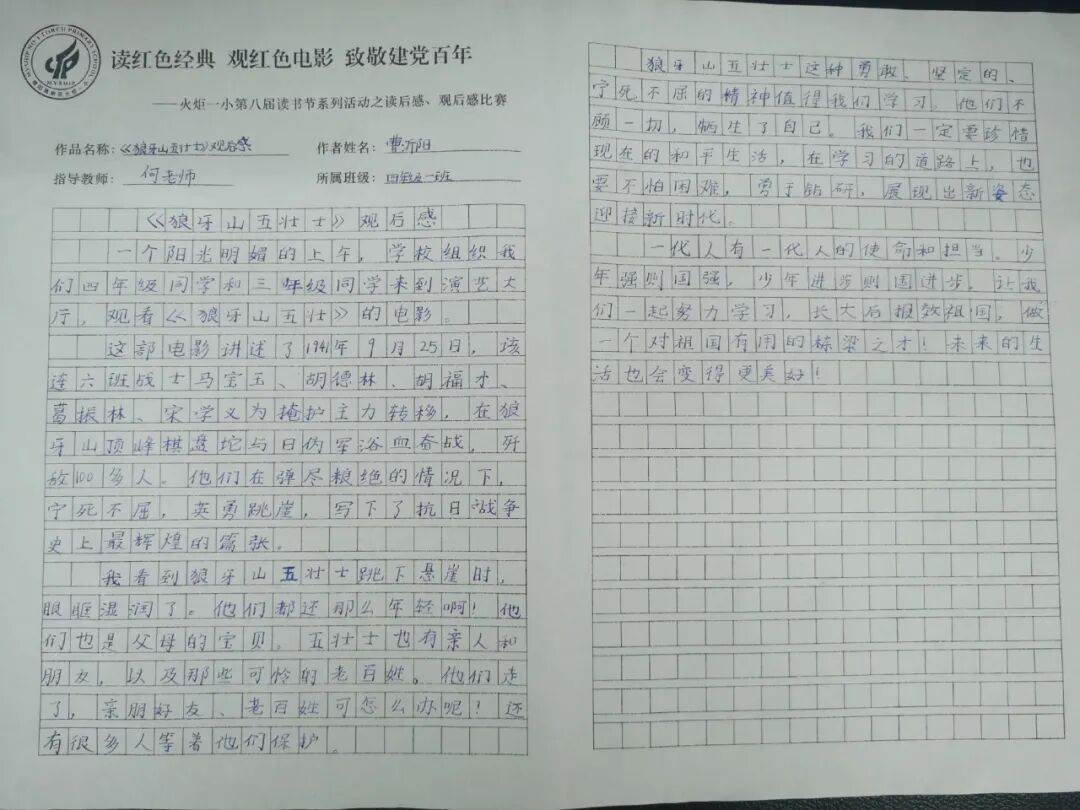 读红色经典 观红色电影 致敬建党百年
——火炬一小第八届读书节系列活动之读后感、观后感比赛
作品名称:《狼牙山五壮士》观后感 作者姓名:曹沂阳
指导教师: 何老师 所属班级:四年级一班
《狼牙山五壮士》观后感
一个阳光明媚的上午,学校组织我
们四年级同学和三年级同学来到演艺大
厅,观看《狼牙山五壮士》的电影。
这部电影讲述了1941年9月25日,该
连六班战士马宝玉、胡德林、胡福才、
葛振林、宋学义为掩护主力转移,在狼
牙山顶峰棋盘坨与日伪军浴血奋战,歼
敌100多人。他们在弹尽粮绝的情况下,
宁死不屈,英勇跳崖,写下了抗日战争
史上最辉煌的篇张。
我看到狼牙山五壮士跳下悬崖时,
眼眶湿润了。他们都还那么年轻啊!他
们也是父母的宝贝。五壮士也有亲人和
朋友,以及那些可怜的老百姓。他们走
了,亲朋好友、老百姓可怎么办呢?还
有很多人等着他们保护。
狼牙山五壮士这种勇敢、坚定的、
宁死不屈的精神值得我们学习。他们不
顾一切,牺生了自己。我们一定要珍惜
现在的和平生活,在学习的道路上,也
要不怕困难,勇于钻研,展现出新姿态
迎接新时代。
一代人有一代人的使命和担当。少
年强则国强,少年进步则国进步,让我
们一起努力学习,长大后报效祖国,做
一个对祖国有用的栋梁之才!未来的生
活也会变得更美好!